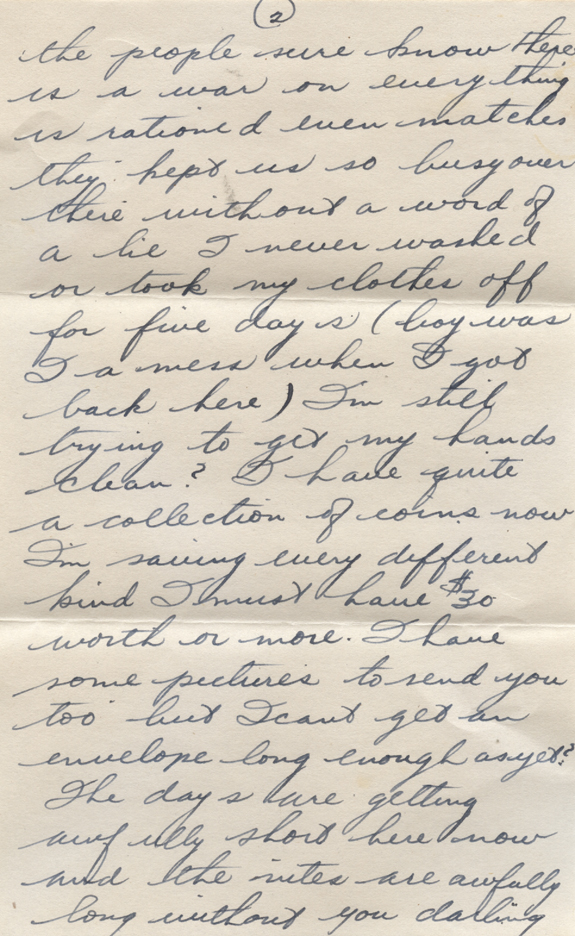 2
the people sure know there
is a war on every thing
is rationed even matches
they kept us so busy over
there without a word of
a lie I never washed
or took my clothes off
for five days (boy was
I a mess when I got
back here) I'm still
trying to get my hands
clean? I have quite
a collection of coins now
I'm saving every different
kind I must have $30
worth or more. I have
some pictures to send you
too but I cant get an
envelope long enough as yet?
The days are getting
awfully short here now
and the nites are awfully
long without you darling